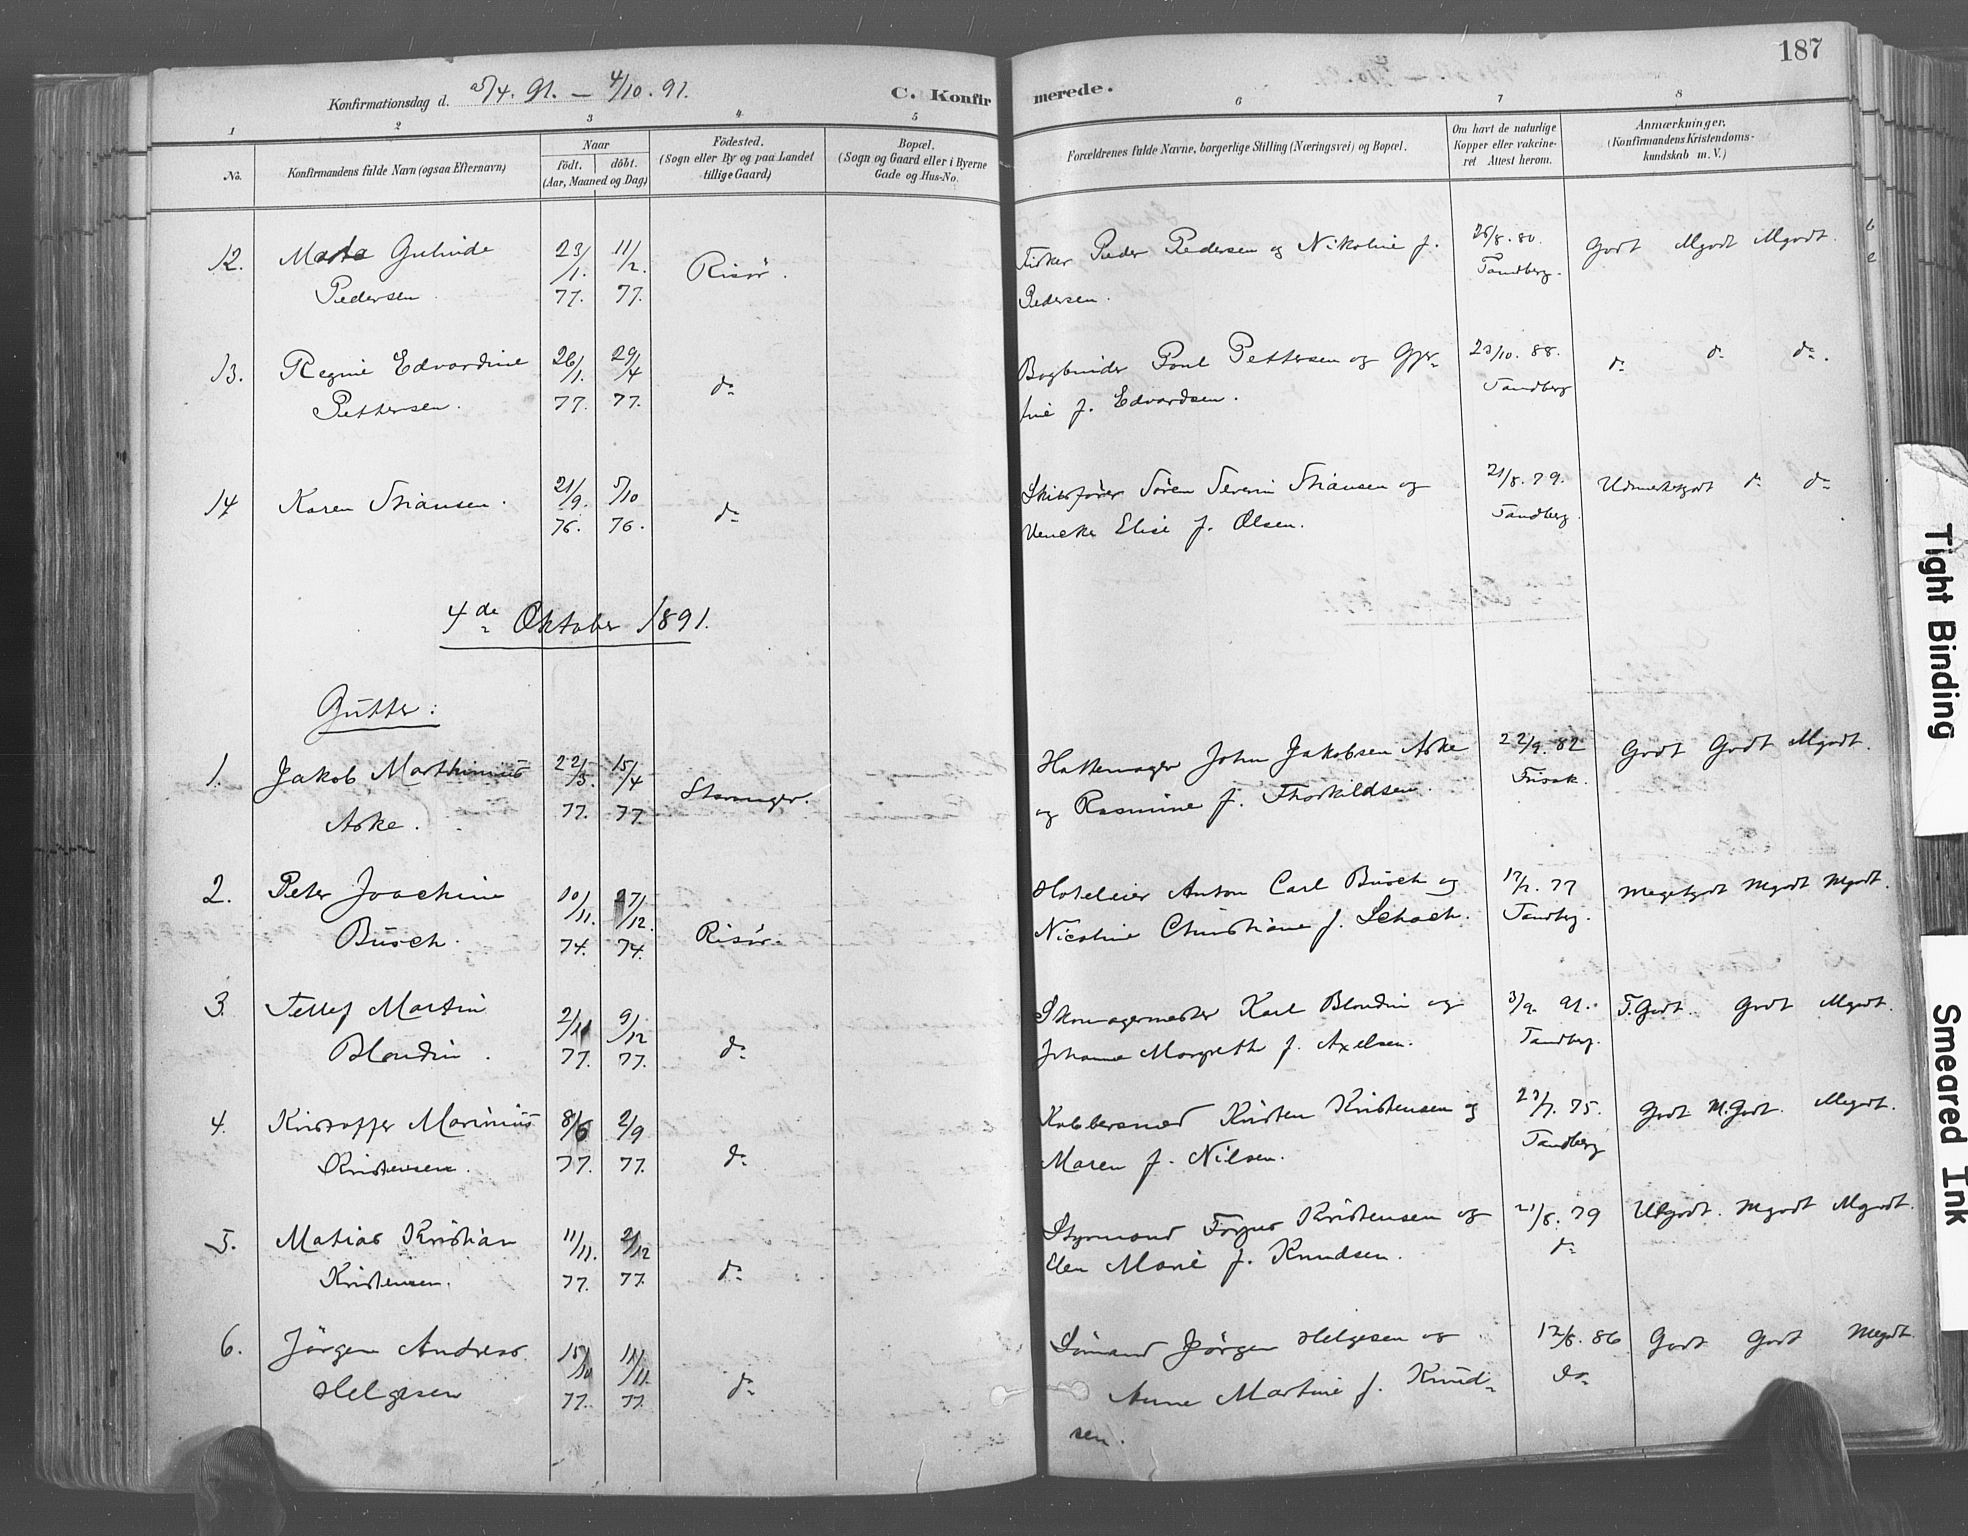 187
Konfirmationsdag d. 4/10. 91.
C. Konfirmerede.
1 2 3 4 5 6 7 8
No.
Konfirmandens fulde Navn (ogsaa Efternavn)
Naar
födt. döbt.
(Aar, Maaned og Dag)
Födested.
(Sogn eller By og paa Landet
tillige Gaard)
Bopæl.
(Sogn og Gaard eller i Byerne
Gade og Hus-No.
Forældrenes fulde Navne, borgerlige Stilling (Næringsvei) og Bopæl.
Om havt de naturlige
Kopper eller vakcine-
ret Attest herom.
Anmærkninger,
(Konfirmandens Kristendoms-
kundskab m. V.)
12. Gulinde 23/1. 11/2. Risör. Fisker Peder Pedersen og Nikoline f. 80. Godt Mgodt Mgodt.
Pedersen 77. 77. Pedersen. Tandberg.
13. Regine Edvardine 26/1. 29/4 do Bogbinder Poul Pettersen og Gjer- 23/10. 88. do do do.
Pettersen. 77. 77. tine f. Edvardsen. Tandberg
14 Karen Stiansen. 21/9. 5/10 do Skibsfører Sören Severin Stiansen og 21/8. 79. Udmerketgodt do do
76. 76. Vencke Elise f. Olsen. Tandberg.
4de Oktober 1891.
Gutter:
1. Jakob Marthinius 22/3. 15/4 Stavanger. Hattemager John Jakobsen Aske 22/9. 82 Godt Godt Mgodt.
Aske. 77. 77. og Rasmine f. Thorkildsen.
2. Peter Joachim 10/11. 27/12. Risör. Hoteleier Anton Carl Busch og 77 Megetgodt Mgodt Mgodt.
Busch. 74. 74. Nicoline Christiane f. Schoch. Tandbg.
3. Tellef Martin 2/11 9/12 do Skomagermester Karl Blondin og 3/9. 91. T.Godt. Godt Mgodt.
Blondin. 77. 77. Johanne Margreth f. Axelsen. Tandbg.
4. Kristoffer Marinius 8/6 2/9 do Kobbersmed Kristen Kristensen og 75. Godt M.Godt. Mgodt.
Kristensen. 77. 77. Maren f. Nilsen. Tandberg
5. Matias Kristian 11/11. 2/12 do Styrmand Kristensen og 21/8. 79 Mgodt Mgodt.
Kristensen. 77. 77. Elen Marie f. Knudsen. do
6. Jörgen Andreas 15/10 11/11. do Sömand Jörgen Helgesen og 12/8. 86 Godt Godt Megodt.
Helgesen 77. 77. Anne Martine f. Knud- do
sen.
Tight Binding
Smeared Ink